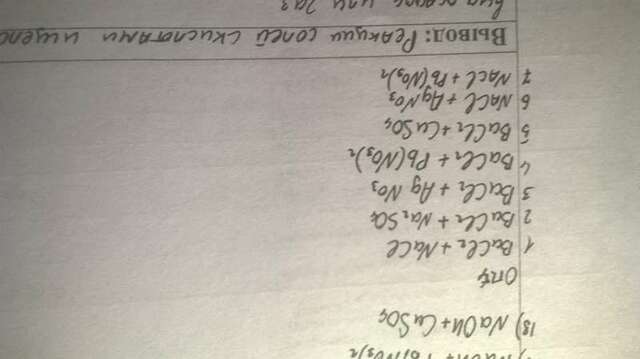 NaOH + Pb(NO3)2
18) NaOH + CuSO4
Опт
1 BaCl2 + NaCl
2 BaCl2 + Na2SO4
3 BaCl2 + AgNO3
4 BaCl2 + Pb(NO3)2
5 BaCl2 + CuSO4
6 NaCl + AgNO3
7 NaCl + Pb(NO3)2
Вывод: Реакции солей с кислотами и щелоч
или газ